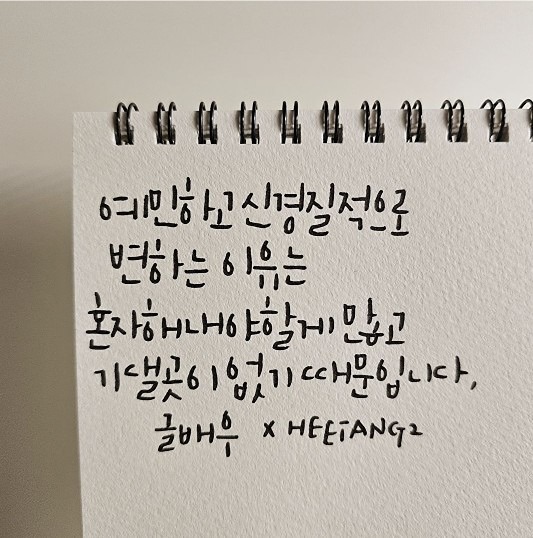 예민하고 신경질적으로
변하는 이유는
혼자 해내야 할 게 많고
기댈 곳이 없기 때문입니다.
글배우 x HEETANG2